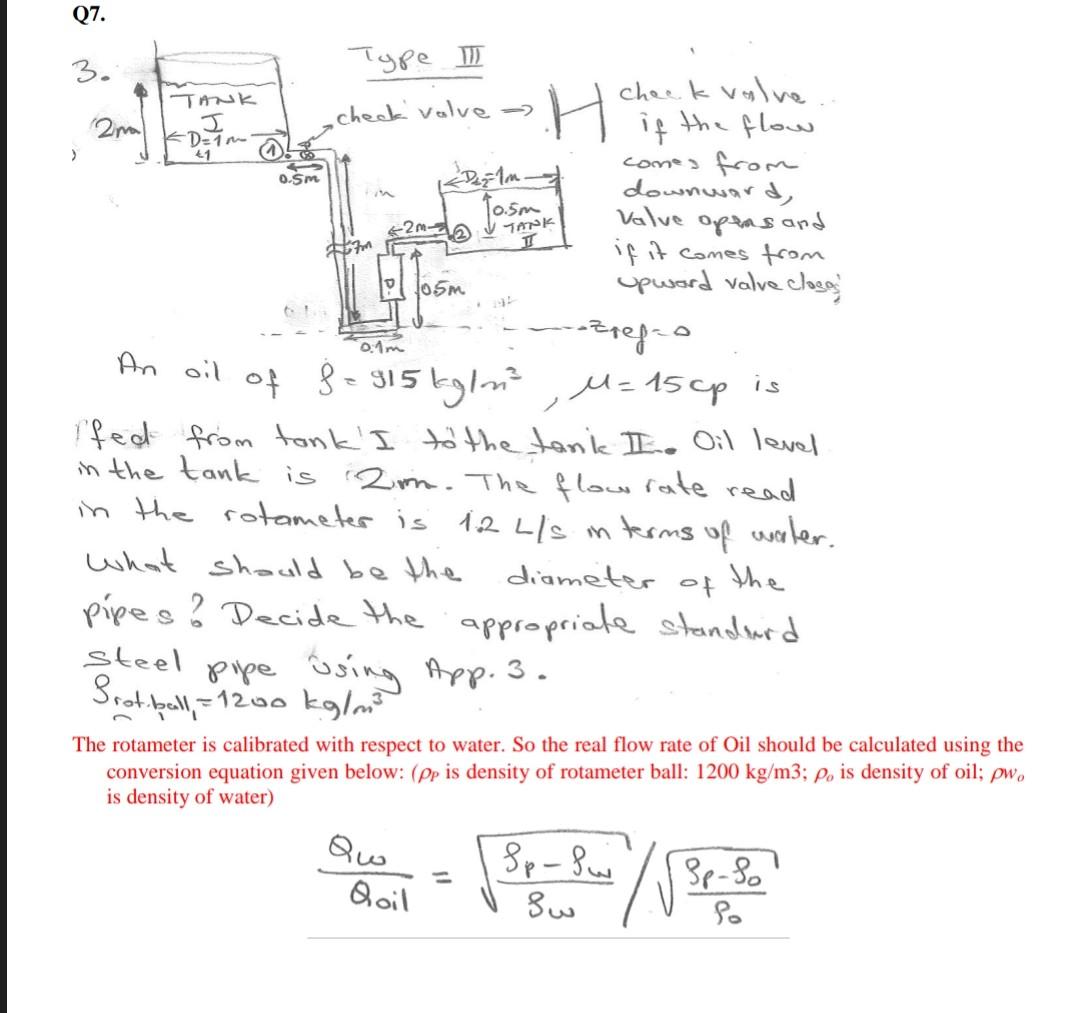 Q7.
3.
Type III
TANK
I
2m
D=1m
t1
①
check valve ⇒
check valve
if the flow
comes from
downward,
Valve opens and
if it comes from
upward valve closes
0.5m
D2=1m
0.5m
TANK
II
2m
②
7m
0.5m
Zref=0
0.1m
An oil of ρ = 915 kg/m³, μ = 15 cp is
fed from tank I to the tank II. Oil level
in the tank is 2m. The flow rate read
in the rotameter is 1.2 L/s in terms of water.
What should be the diameter of the
pipes? Decide the appropriate standard
steel pipe using App. 3.
ρrot.ball = 1200 kg/m³
The rotameter is calibrated with respect to water. So the real flow rate of Oil should be calculated using the
conversion equation given below: (ρP is density of rotameter ball: 1200 kg/m3; ρo is density of oil; ρwo
is density of water)
Qw / Qoil = √((ρp-ρw) / ρw) / √((ρp-ρo) / ρo)